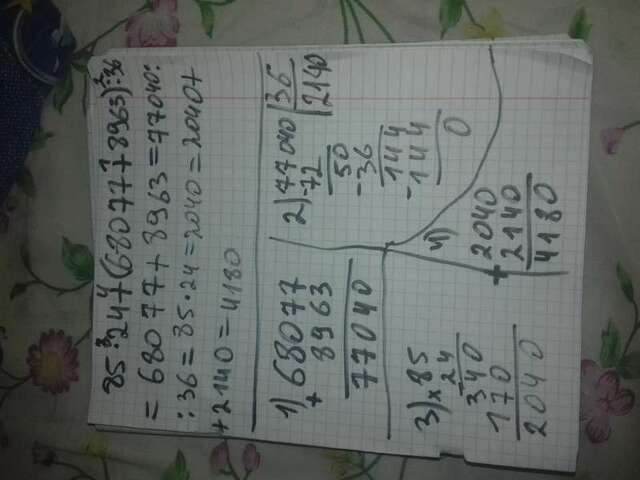 85·24+(68077+8963):36
= 68077+8963=77040:
:36=85·24=2040=2040+
+2140=4180
1) 68077
+ 8963
77040
2) 77040 36
-72 2140
50
-36
144
-144
0
3) 85
× 24
340
170
2040
4) 2040
+ 2140
4180